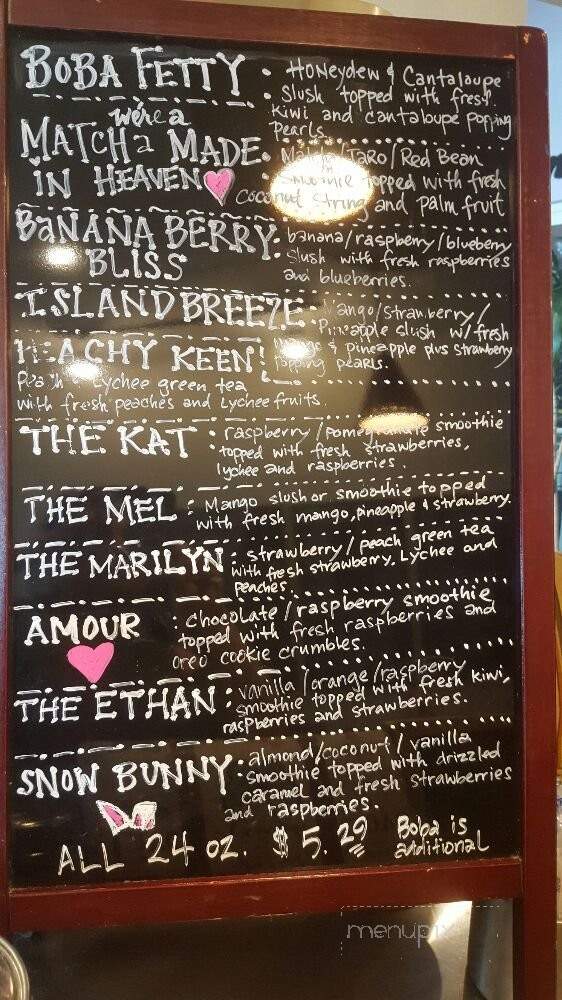 BOBA FETTY : Honeydew & Cantaloupe
Slush topped with fresh
Kiwi and cantaloupe popping
pearls.
we're a
MATCHa MADE
IN HEAVEN
Matcha/Taro/Red Bean
Smoothie topped with fresh
Coconut String and palm fruit
BaNANA BERRY
BLISS
: banana/raspberry/blueberry
Slush with fresh raspberries
and blueberries.
ISLAND BREEZE : Mango/strawberry/
Pineapple slush w/ fresh
Mango & Pineapple plus strawberry
Popping pearls.
PEACHY KEEN!
Peach & Lychee green tea
with fresh peaches and Lychee fruits.
THE KAT : raspberry/pomegranate smoothie
topped with fresh strawberries,
lychee and raspberries.
THE MEL : Mango slush or smoothie topped
with fresh mango, pineapple & strawberry.
THE MARILYN : strawberry/peach green tea
with fresh strawberry, Lychee and
Peaches.
AMOUR : chocolate/raspberry smoothie
topped with fresh raspberries and
oreo cookie crumbles.
THE ETHAN : vanilla/orange/raspberry
smoothie topped with fresh kiwi,
raspberries and strawberries.
SNOW BUNNY : almond/coconut/vanilla
smoothie topped with drizzled
caramel and fresh strawberries
and raspberries.
ALL 24 oz. $5.29 Boba is
additional
menupix